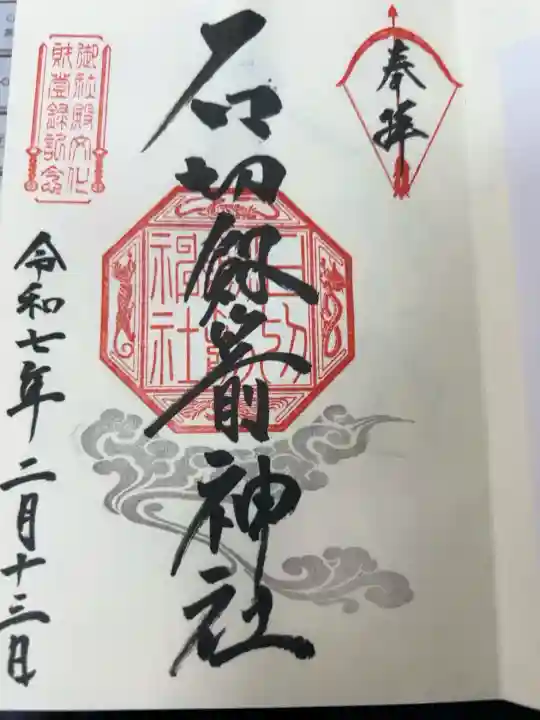 奉拝
石切劔箭神社
石切劔箭神社
御社殿文化
財登録記念
令和七年二月十三日